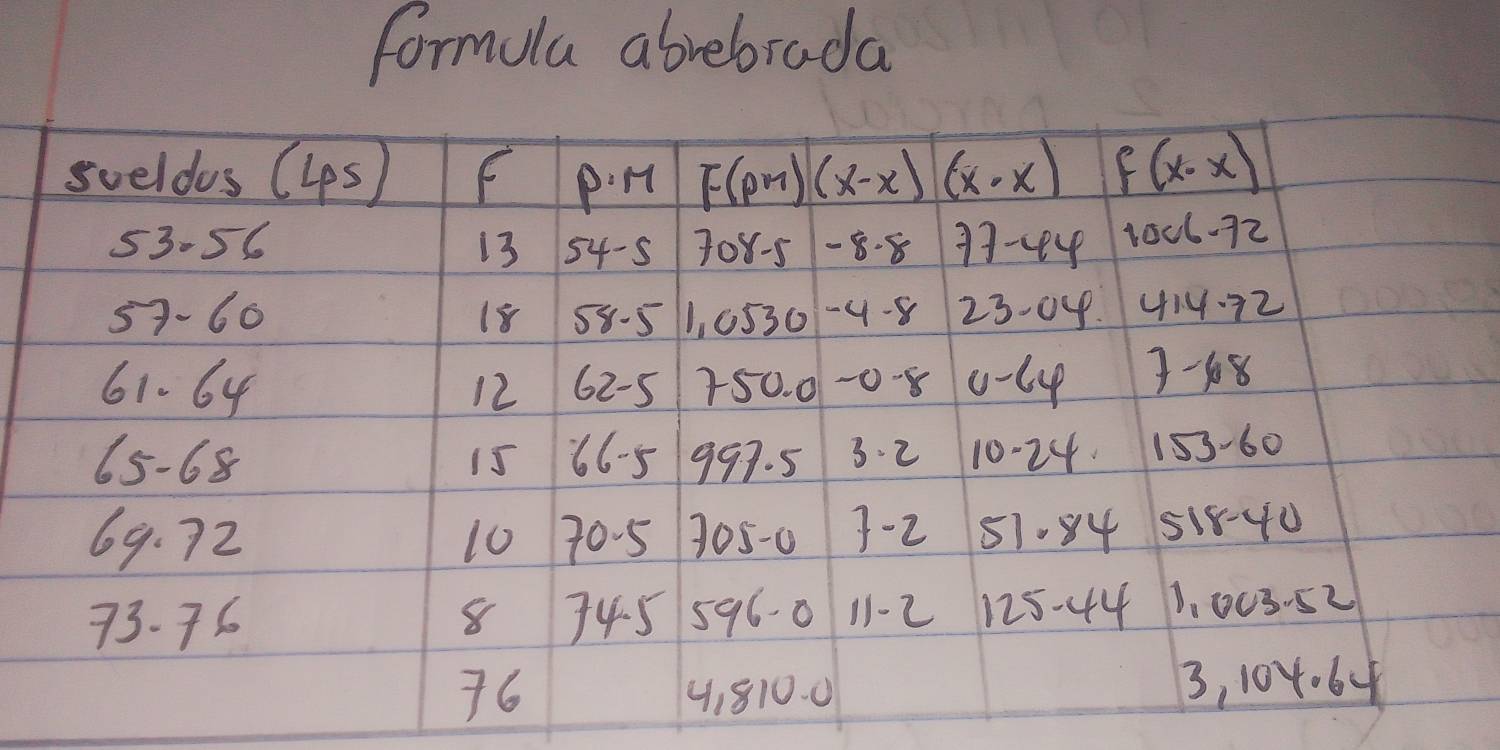 formula abrebrada
sueldos (Lps) F P.M F(pm) (x-x) (x.x) f(x.x)
53.56 13 54-5 708-5 -8-8 77-44 1006-72
57-60 18 58-5 1,0530 -4-8 23-04. 414-72
61-64 12 62-5 750.0 -0-8 0-64 7-68
65-68 15 66-5 997.5 3.2 10-24. 153-60
69.72 10 70.5 705-0 7-2 51.84 518-40
73-76 8 74.5 596-0 11-2 125-44 1,003.52
76 4,810.0 3,104.64